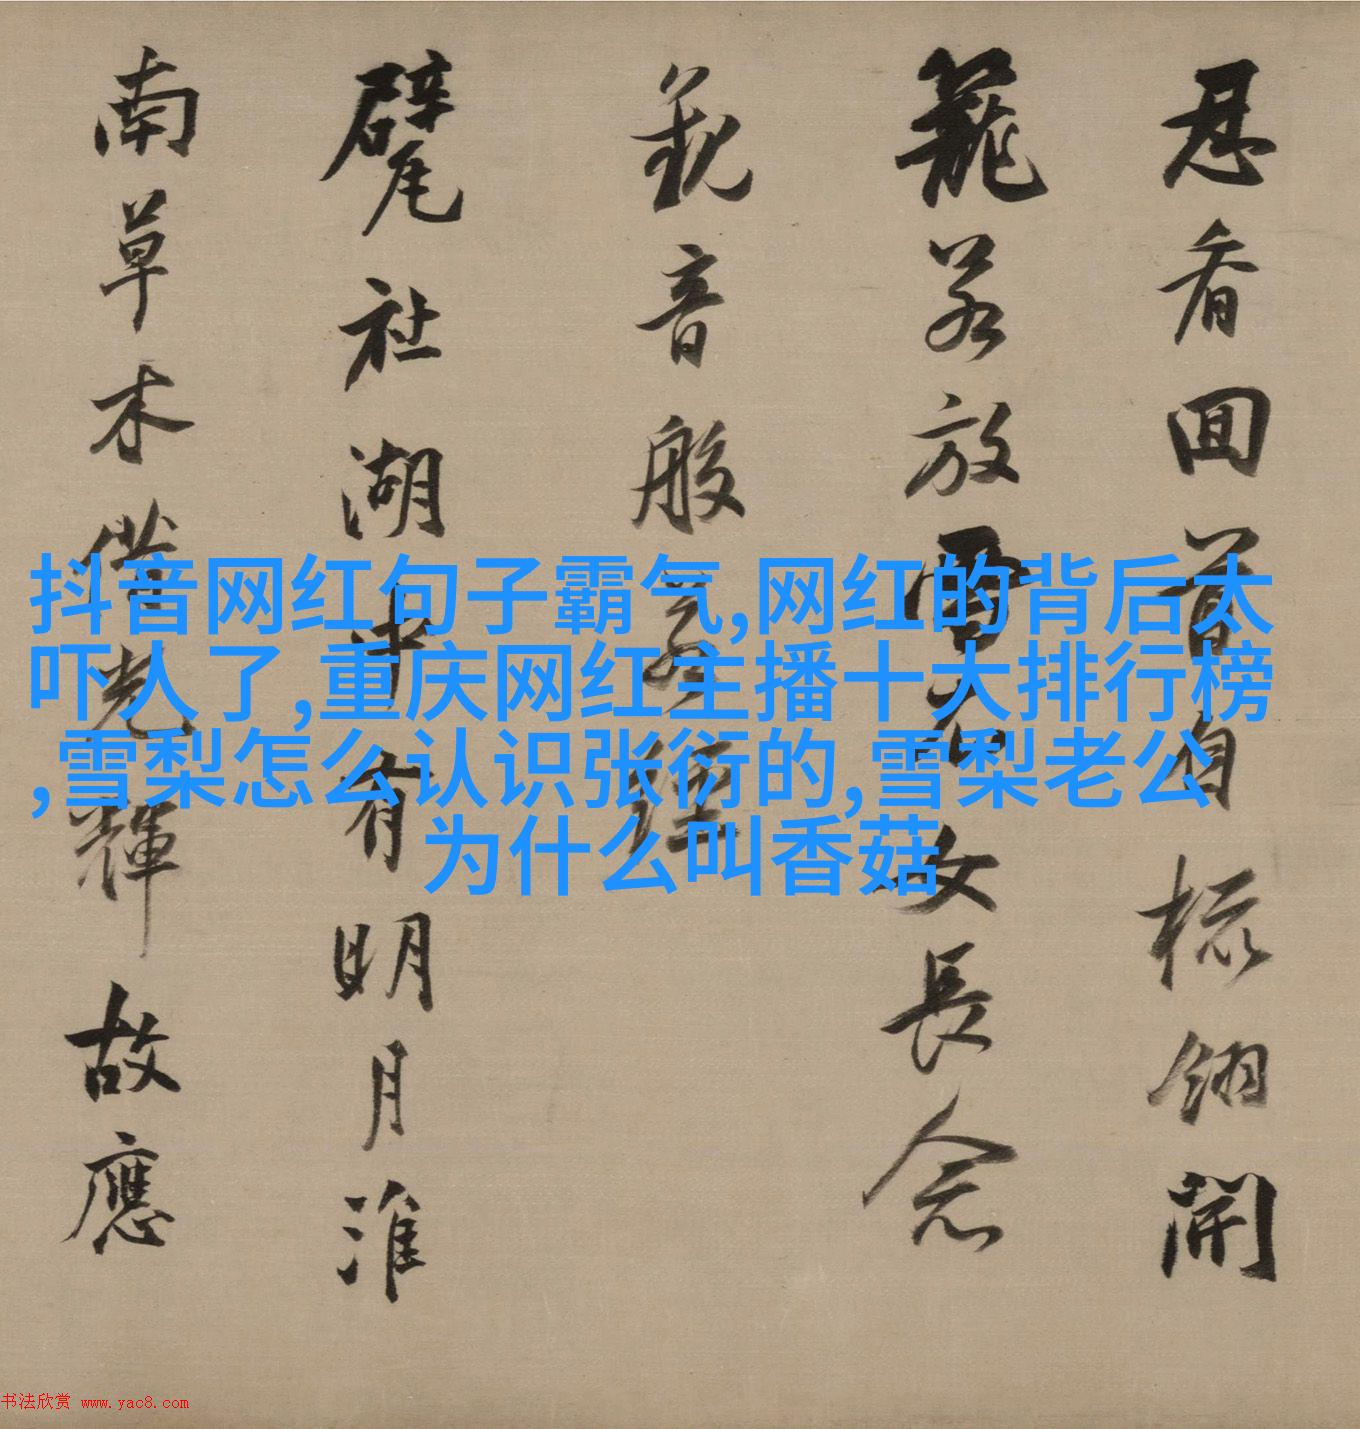 忍看回首自梳翎開
籠若放雪衣女長念
觀音般若經
甓社湖中有明月淮
南草木借光輝故應
抖音网红句子霸气,网红的背后太
吓人了,重庆网红主播十大排行榜
,雪梨怎么认识张衍的,雪梨老公
为什么叫香菇
书法欣赏 www.yac8.com